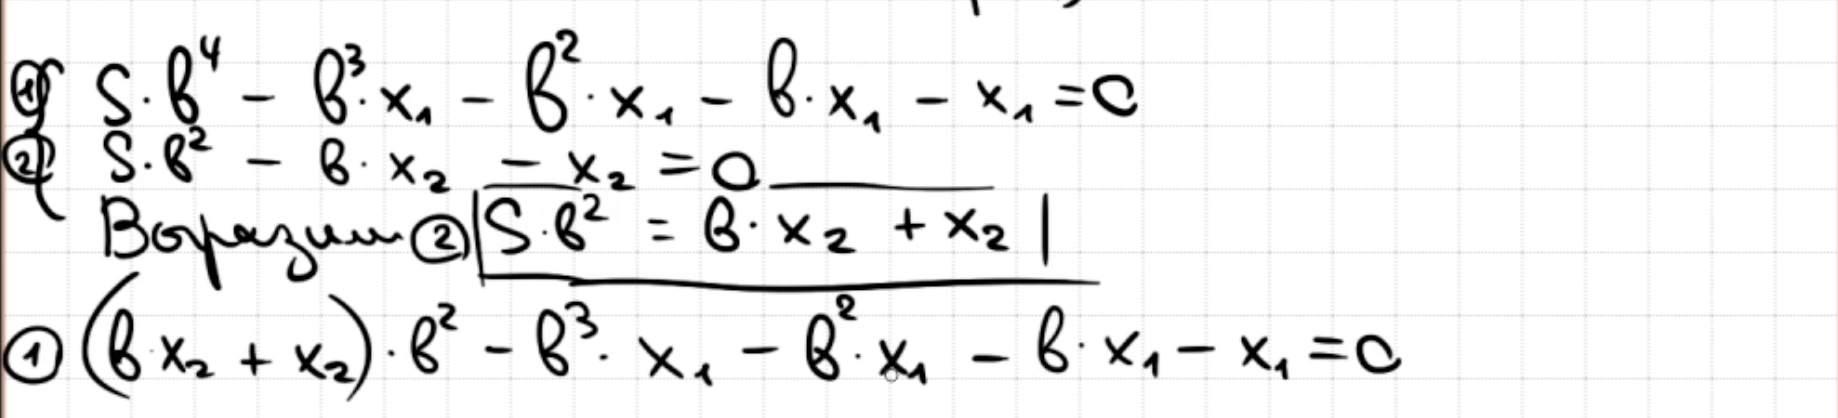 ① S·b⁴ - b³·x₁ - b²·x₁ - b·x₁ - x₁ = 0
② S·b² - b·x₂ - x₂ = 0
Выразим ② S·b² = b·x₂ + x₂
① (b·x₂ + x₂)·b² - b³·x₁ - b²·x₁ - b·x₁ - x₁ = 0